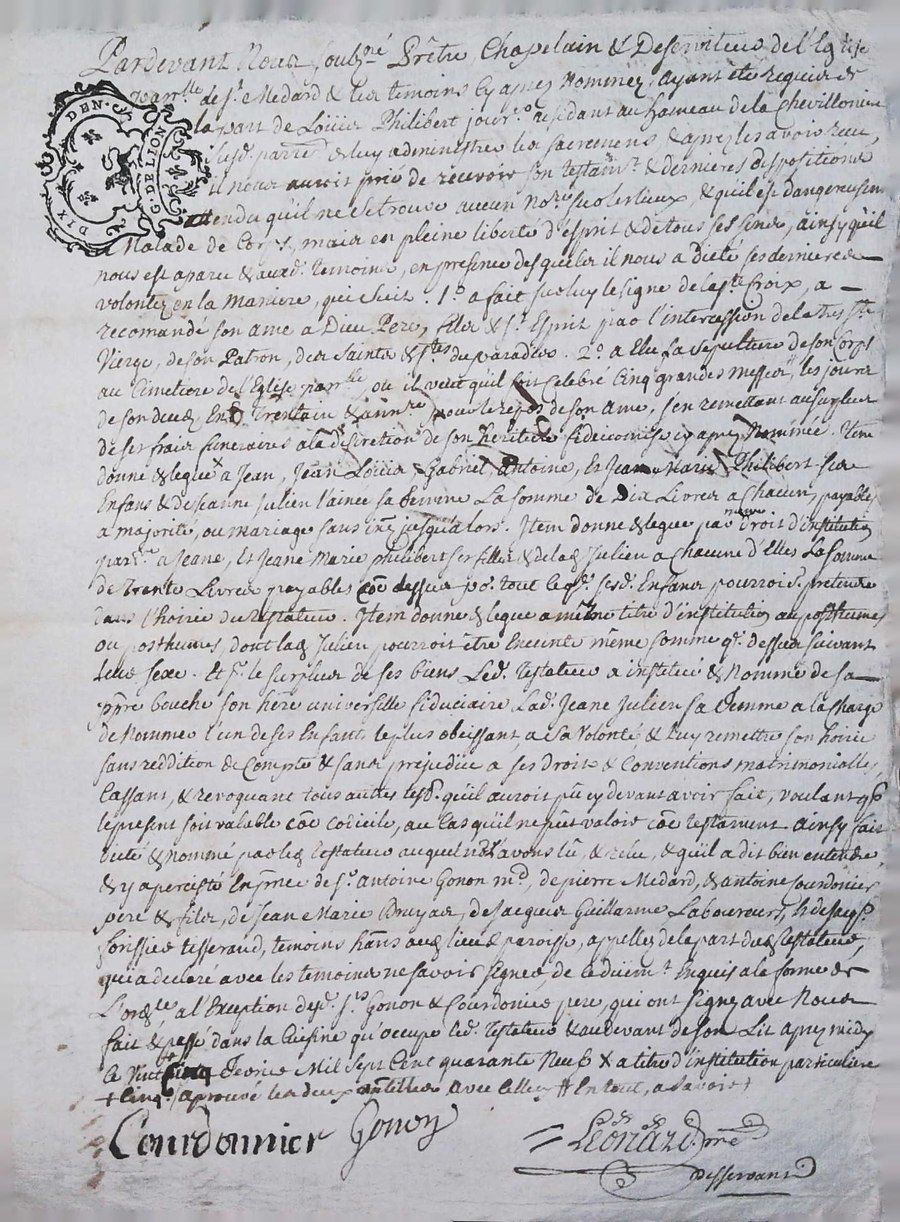 Pardevant Nous soubz.né Prêtre Chapelain & Deserviteur de l'Eglise
parr.lle de s.t Medard & les temoins cy apres Nommez, ayant été requis de
la part de Loüis Philibert jour.r residant au hameau de la Chevillonière
susd. parr.e & luy administré les sacremens, & apres les avoir receu,
il nous auroit prié de recevoir son testam.t & dernieres dispositions
attendu qu'il ne se trouve aucun No.re sur les lieux, & qu'il est dangereusem.t
Malade de Corps, mais en pleine liberté d'esprit & de tous ses sens, ainsy qu'il
nous est aparu & auxd. temoins, en presence desquels il nous a dicté ses dernieres
volontez en la maniere, qui suit. 1.o a fait sur luy le signe de la s.te Croix, a
recomandé son ame a Dieu Pere, fils & s.t Esprit par l'intercession de la tres s.te
Vierge, de son Patron, des saints & s.tes du paradis. 2.o a Elu sa sepulture de son Corps
au Cimetiere de l'Eglise parr.lle, ou il veut qu'il soit celebré Cinq grandes Messes, les jours
de son deces, En Trentain & ann.re pour le repos de son ame, s'en remettant au surplus
de ses frais funeraires a la discretion de son heritiere fideicomise cy apres Nommée. Item
donne & legue a Jean, Jean Loüis, Gabriel Antoine, Et Jean Marie Philibert ses
Enfans & de Jeanne Julien l'ainée sa femme La somme de Dix Livres a chacun, payables
a majorité, ou mariage sans int. jusqu'alors. Item donne & legue par meme Droit d'institution
part.re a Jeane, Et Jeane Marie philibert ses filles & de lad. Julien a chacune d'elles La somme
de trente Livres payables cõe dessus po.r tout ce q. sesd. Enfans pourroi.t pretendre
dans l'hoirie du testateur. Item donne & legue a même titre d'institution au posthume
ou posthumes, dont lad. Julien pourroit être Enceinte même somme q. dessus suivant
leur sexe. Et p.r le surplus de ses biens Led. testateur a institué & Nommé de sa
ppre bouche son here universelle fiduciaire Lad. Jeane Julien sa Femme a la charge
de Nommer l'un de ses Enfants le plus obeissant, a sa Volonté & luy remettre son hoirie
sans reddition de Compte & sans prejudice a ses droits & Conventions matrimonialles,
Cassant, & revoquant tous autres test. qu'il auroit pû cy devant avoir fait, voulant q.
le present soit valable cõe codicile, au Cas qu'il ne peut valoir cõe testament ainsy fait
dicté & Nommé par led. testateur auquel nous l'avons lû, & relu, & qu'il a dit bien entendre,
& y a percisté En pñce de s.r antoine Gonon m.d, de pierre Medard, & antoine Courdonnier
pere & fils, de Jean Marie Bruyas, de Jacques Guillarme Laboureurs, & de Jacq.
forissier tisserand, temoins hans aud. lieu & paroisse, appelles de la part dud. testateur,
qui a declaré avec les temoins ne savoir signer, de ce düem.t Enquis a la forme de
l'ord.ce a l'Exception desd. s.rs Gonon & Courdonnier pere, qui ont signez avec Nous
fait & passé dans la Cuisine qu'occupe led. testateur & au devant de son Lit apres midy
Ce vint cinq Fevrier Mil sept Cent quarante Neuf & a titre d'institution particuliere
+ Cinq / aprouvé les deux
Courdonnier Gonon Léonard p.re
Desservant
DIX DEN.
G. DE LION